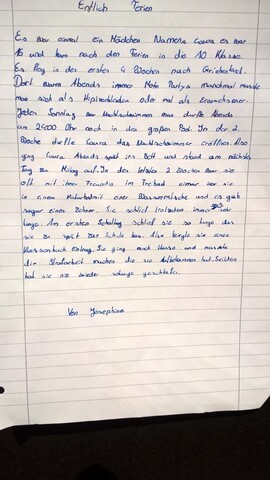 Entlich Ferien
Es war einmal ein Mädchen Namens Laura es war
15 und kam nach den Ferien in die 10 Klasse.
Es flog in den ersten 4 Wochen nach Griechenland.
Dort waren Abends immer Moto Partys manchmal musste
man sich als Hip verkleiden oder mal als Erwachsener.
Jeden Sonntag war Nachtschwimmen man durfte Abends
um 24:00 Uhr noch in den großen Pool. In der 2
Woche durfte Laura das Nachtschwimmen eröffnen. Also
ging Laura Abends spät ins Bett und stand am nächsten
Tag zu Mittag auf. In den letzten 2 Wochen war sie
oft mit ihrer Freundin im Freibad einmal war sie
in einem Naturbad mit einer Wasserrutsche und es gab
sogar einen Zehner. Sie schlief trotzdem immer sehr
lange. Am ersten Schultag schlief sie so lange das
sie zu spät zur Schule kam. Also kriegte sie einen
Klassenbuch Eintrag. Sie ging nach Hause und musste
die Strafarbeit machen die sie aufbekommen hat. Seitdem
hat sie nie wieder solange geschlafen.
Von Josephine